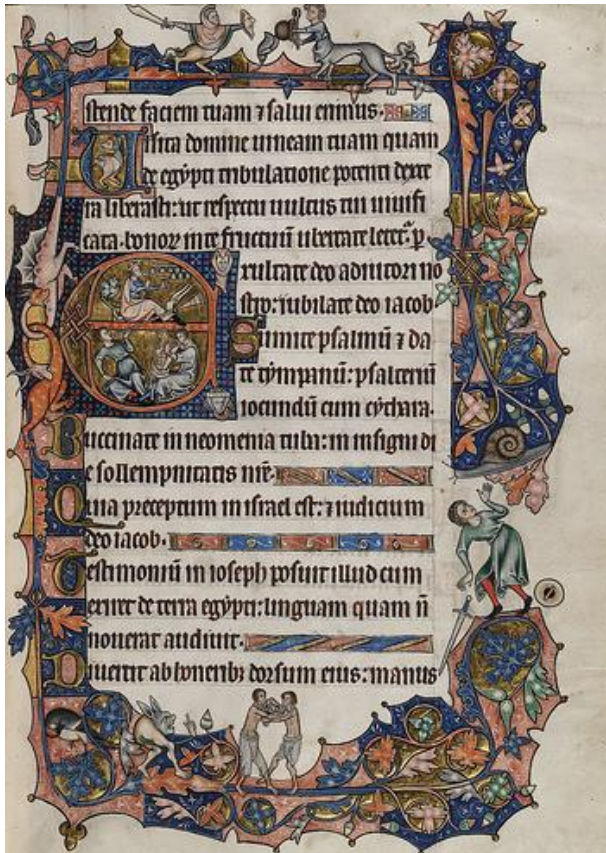 stende faciem tuam ⁊ salui erimus.
Uisita domine uineam tuam quam
de egypti tribulatione potenti dexte
ra liberasti: ut respectu uultus tui uiuifi
cata. honor in te fructuū ubertate letet᷑. p̄
Exultate deo adiutori no
stro: iubilate deo iacob
Sumite psalmū ⁊ da
te tympanū: psalteriū
iocundū cum cythara.
Buccinate in neomenia tuba: in insigni di
e sollempnitatis nr̄e.
Quia preceptum in israel est: ⁊ iudicium
deo iacob.
Testimoniū in ioseph posuit illud cum
exiret de terra egypti: linguam quam ñ
nouerat audiuit.
Diuertit ab honerib; dorsum eius: manus